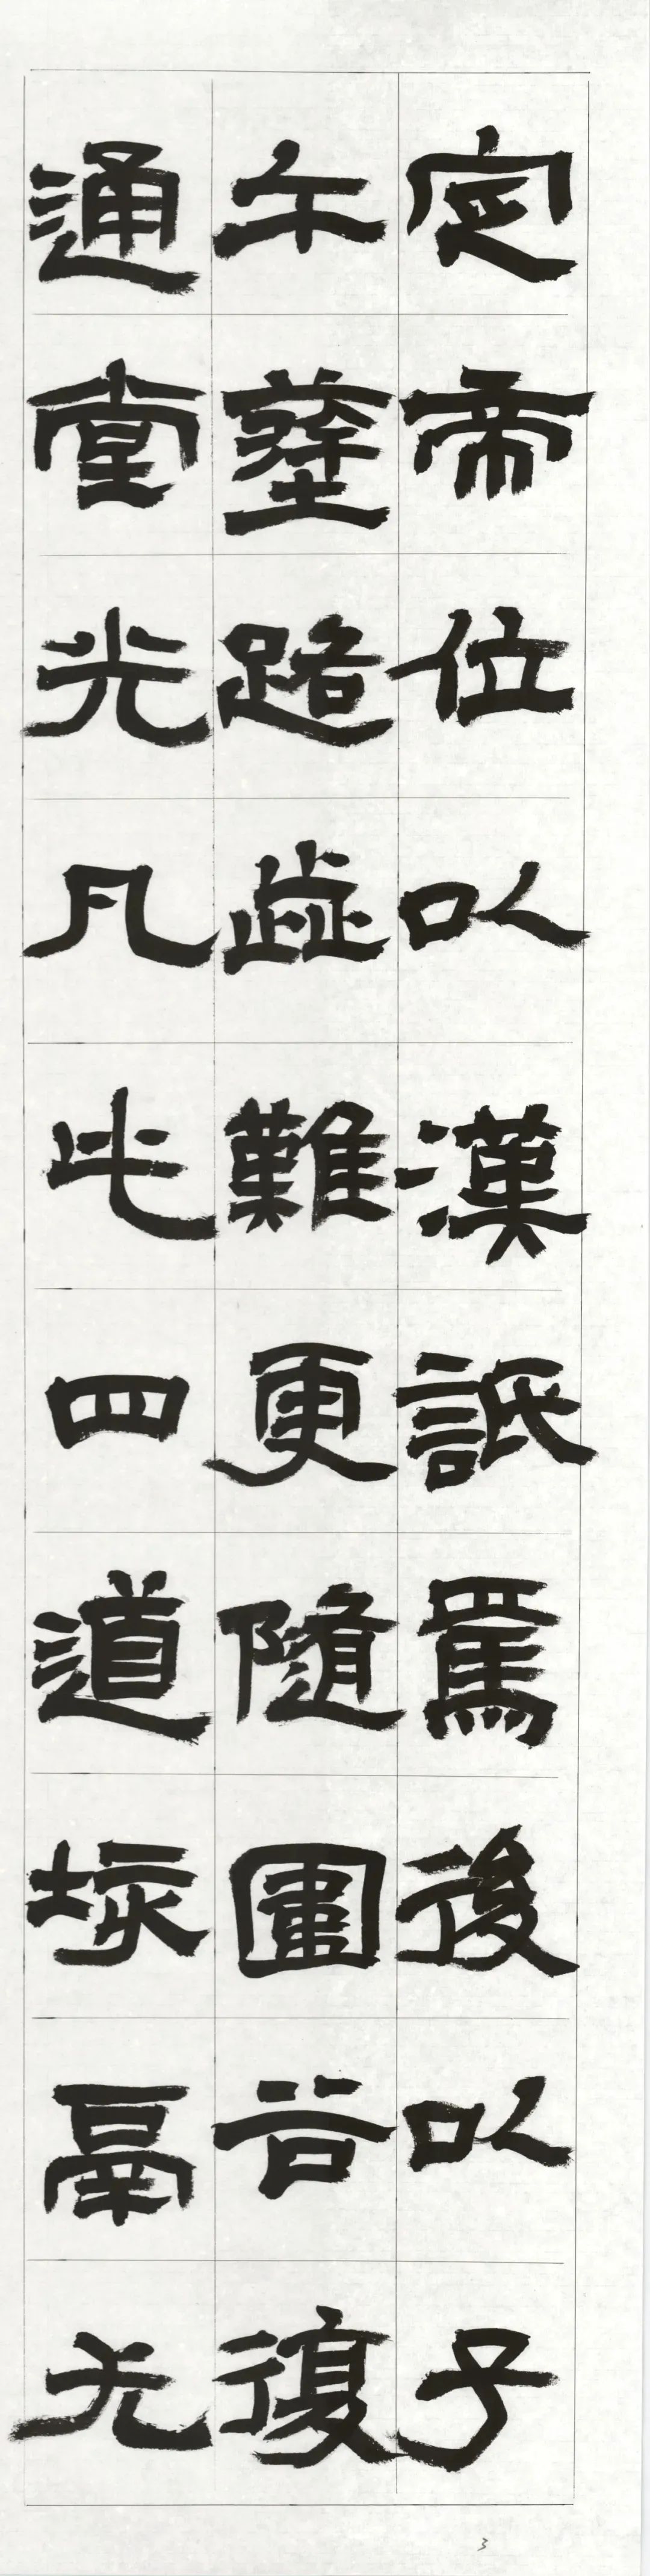 定帝位以漢詆焉後以子
午𡍼路歰難更隨圍谷復
通堂光凡此四道垓鬲尤